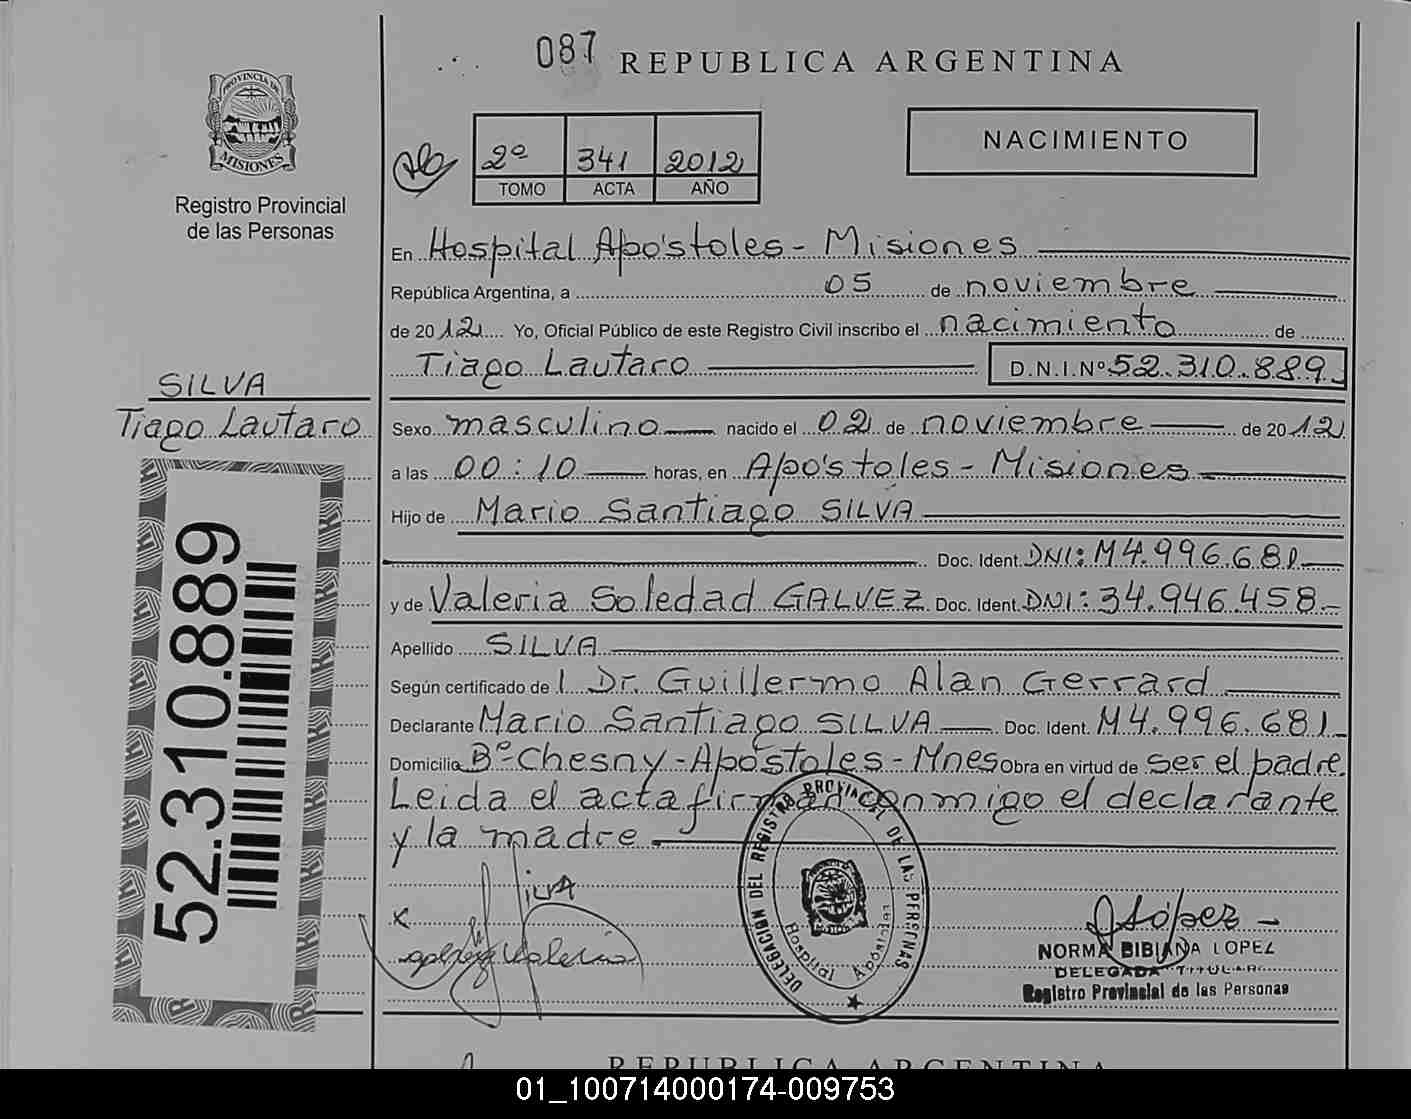 087 REPUBLICA ARGENTINA
PROVINCIA DE
MISIONES
Registro Provincial
de las Personas
2º 341 2012
TOMO ACTA AÑO
NACIMIENTO
En Hospital Apóstoles - Misiones
República Argentina, a 05 de noviembre
de 2012 Yo, Oficial Público de este Registro Civil inscribo el nacimiento de
Tiago Lautaro D.N.I.Nº 52.310.889
SILVA
Tiago Lautaro
Sexo masculino nacido el 02 de noviembre de 2012
a las 00:10 horas, en Apóstoles - Misiones
Hijo de Mario Santiago SILVA
Doc. Ident. DNI: M4.996.681
y de Valeria Soledad GALVEZ Doc. Ident. DNI: 34.946.458
Apellido SILVA
Según certificado de l Dr. Guillermo Alan Gerrard
Declarante Mario Santiago SILVA Doc. Ident. M4.996.681
Domicilio Bº Chesny - Apóstoles - Mnes Obra en virtud de ser el padre.
Leida el acta firman conmigo el declarante
y la madre
52.310.889
Silva
x
Valeria
DELEGACION DEL REGISTRO PROVINCIAL DE LAS PERSONAS
Hospital Apóstoles
López
NORMA BIBIANA LOPEZ
DELEGADA TITULAR
Registro Provincial de las Personas
REPUBLICA ARGENTINA
01_100714000174-009753